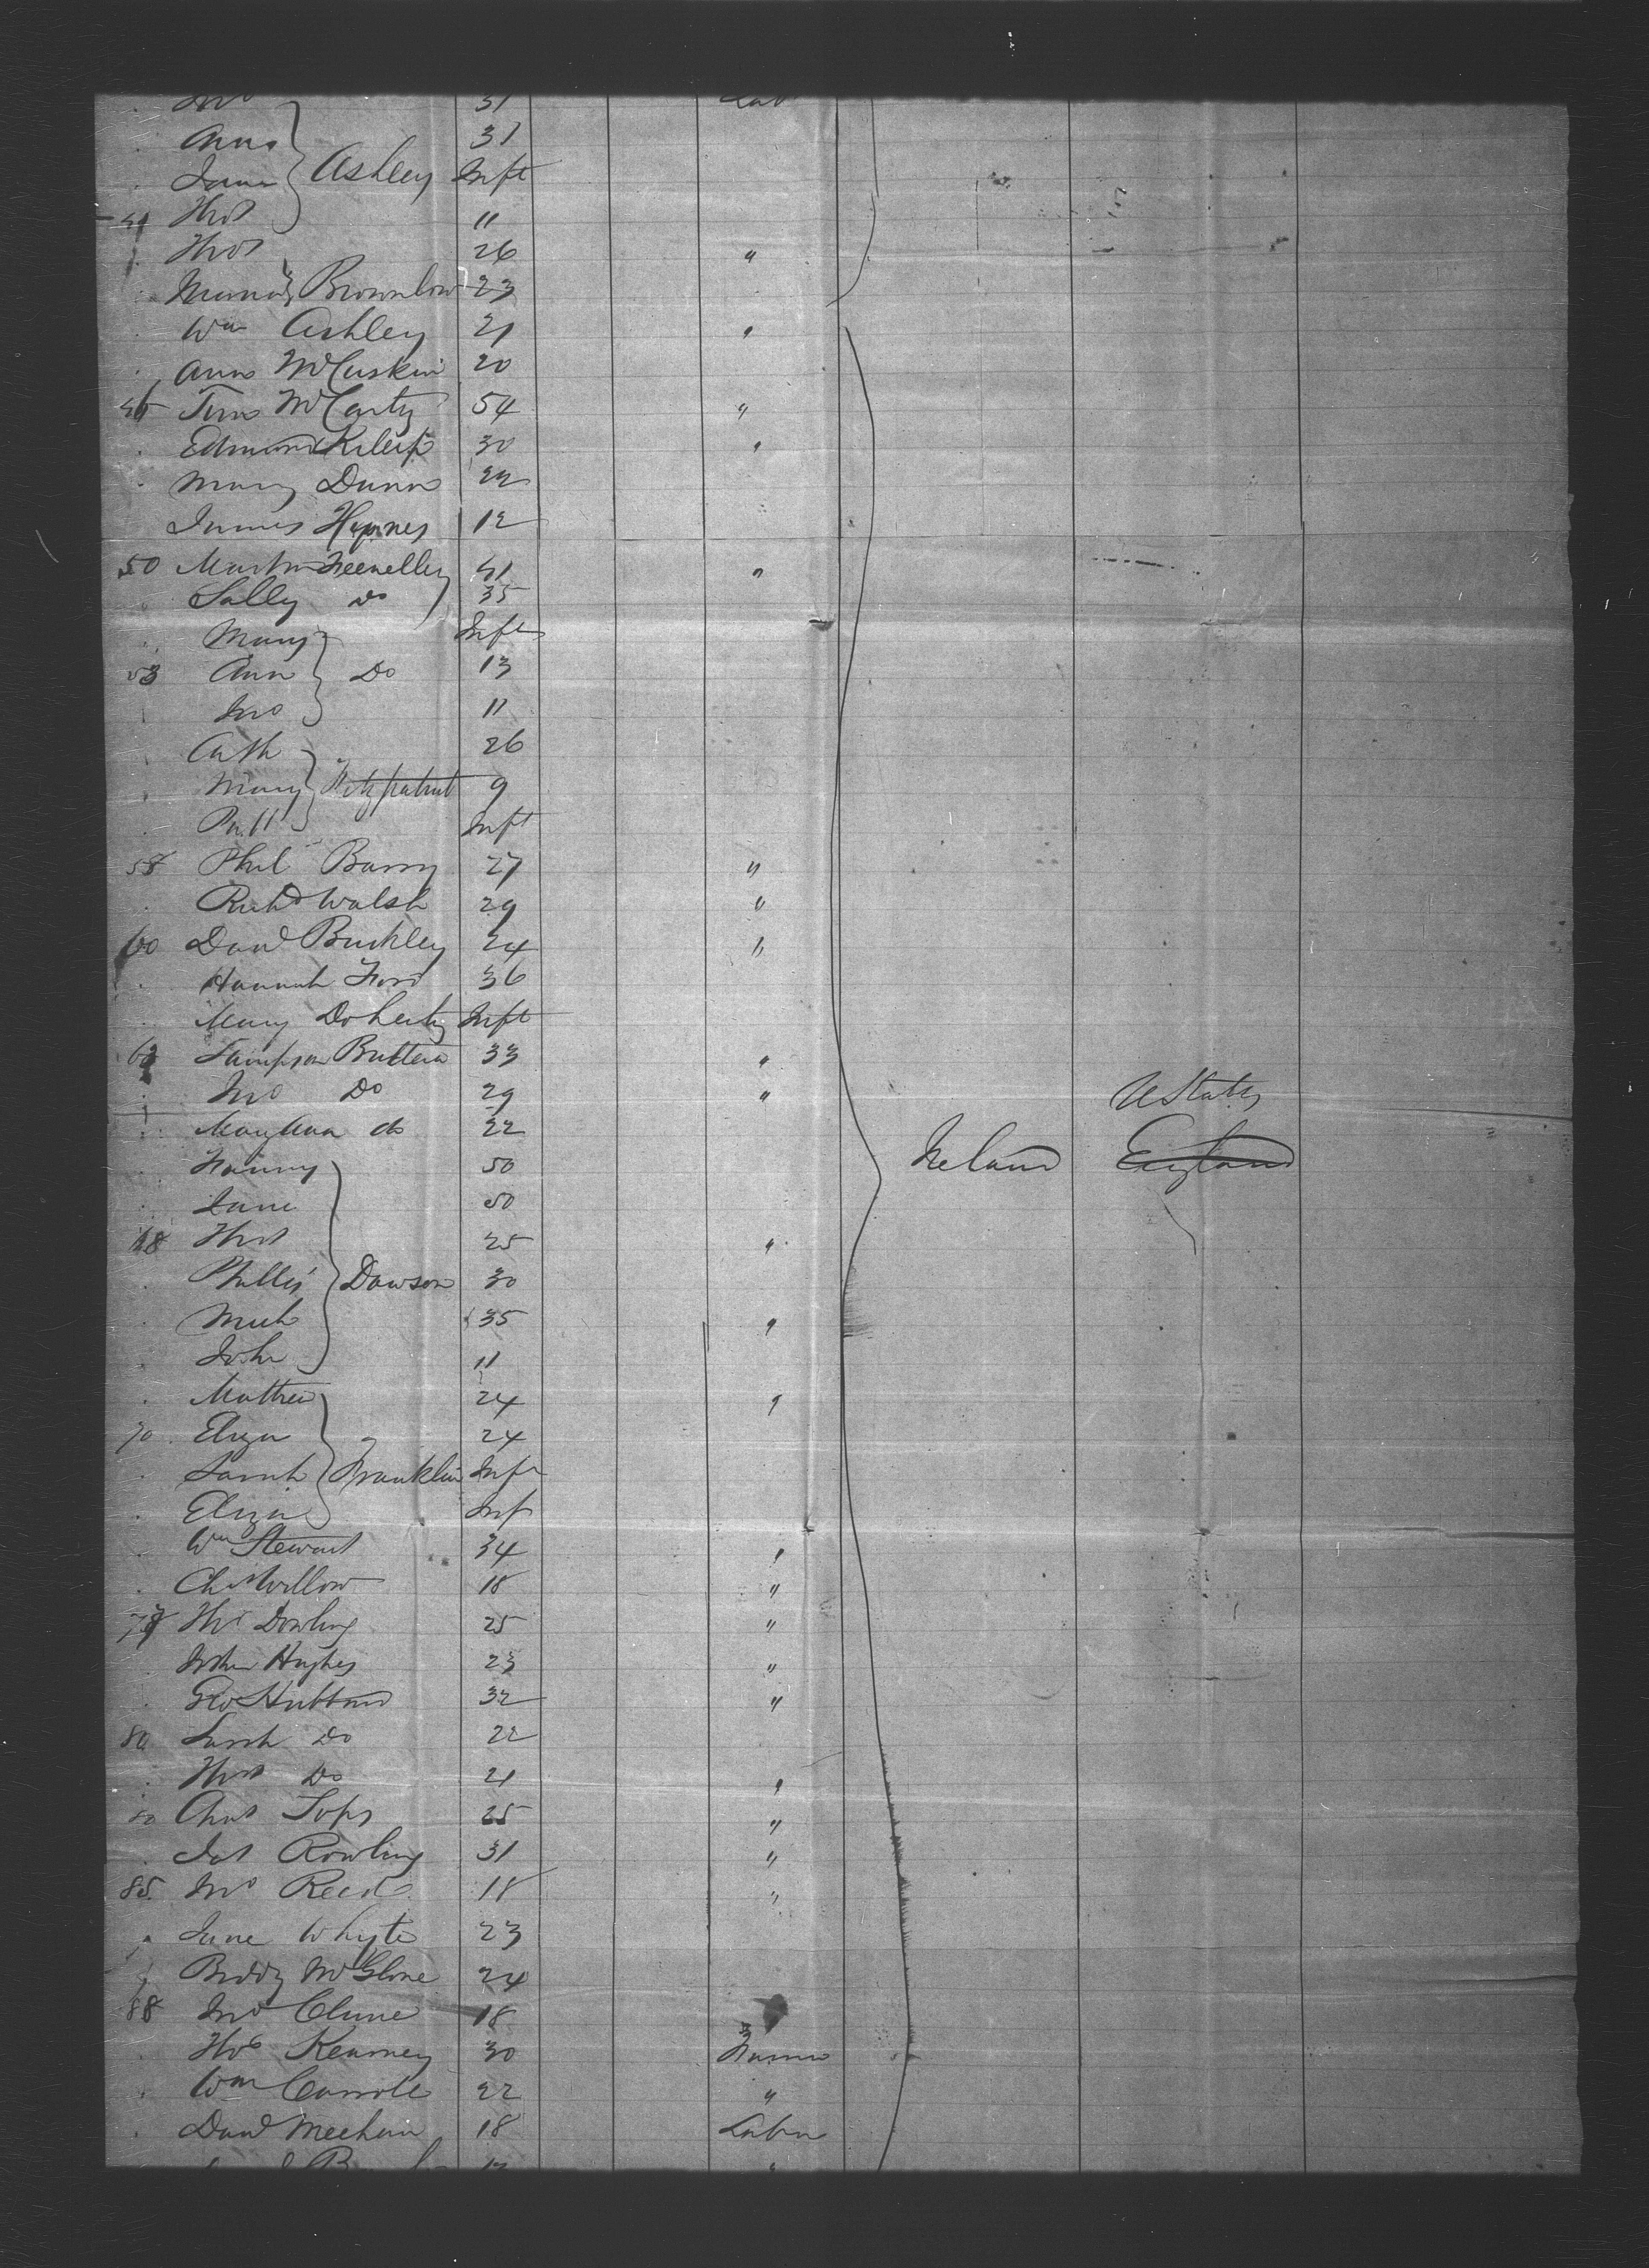 Jno 31 Lab
Ann 31
Jane } Ashley Inft
Thos 11
Thos 26 "
} Brownlow 23
Wm Ashley 21 "
Ann McCuskin 20
46 Tim McCarty 54 "
Edmund 30 "
Mary Dunn 22
James Hynes 12
50 Martin 41 "
Sally Do 35
Mary Inft
53 Ann } Do 13
Jno 11
Cath 26
Mary } Fitzpatrick 9
Patk Inft
58 Phil Barry 27 "
Richd Walsh 29 "
60 Davd Buckley 24 "
Hannah Ford 36
Mary Doherty Inft
63 Sampson 33 "
Jno Do 29 "
UStates
Mary Ann do 22
Fanny 50 Ireland England
Jane 50
68 Thos 25 "
Phillis } Dawson 30
Mich 35 "
John 11
Mathew 24 "
70 Eliza 24
Sarah } Franklin Inft
Eliza Inf
Wm Stewart 34 "
Chs Willow 18 "
Thos Dowling 25 "
John Hughes 23 "
Geo Hubbard 32 "
80 Sarah Do 22
Thos Do 21 "
Chas Tops 25 "
Jas Rowling 31 "
85 Jno Reed 18 "
Jane Whyte 23
Biddy McGlone 24
88 Jno Clune 18 "
Thos Kearney 30 Farmr
Wm Carroll 22 "
Davd Meehan 18 Labr